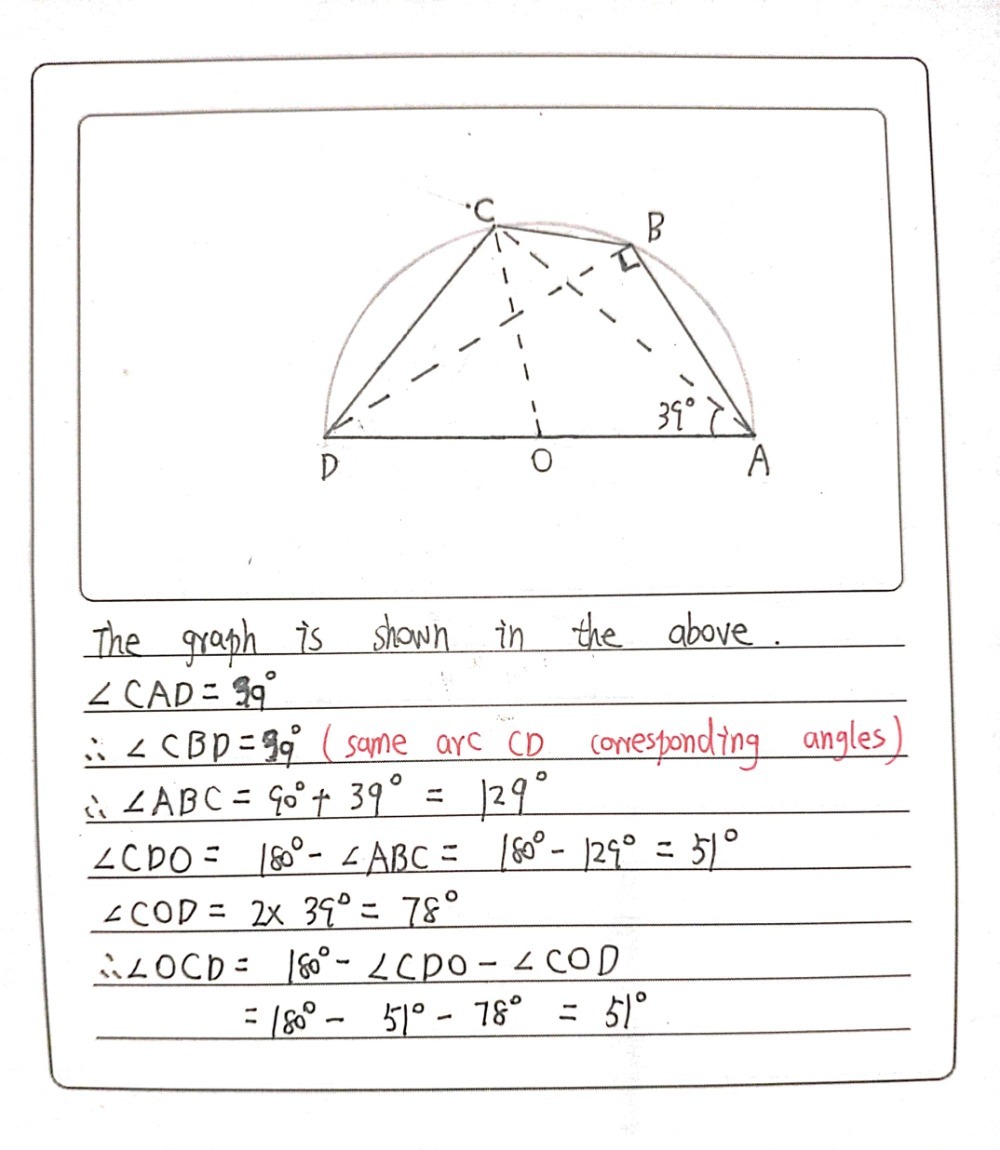 C
B
39°
D
O
A
The graph is shown in the above.
∠CAD = 39°
∴ ∠CBD = 39° (same arc CD corresponding angles)
∴ ∠ABC = 90° + 39° = 129°
∠CDO = 180° - ∠ABC = 180° - 129° = 51°
∠COD = 2x 39° = 78°
∴ ∠OCD = 180° - ∠CDO - ∠COD
= 180° - 51° - 78° = 51°